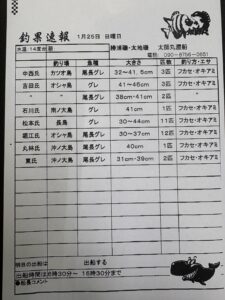 釣果速報 1月25日 日曜日
水温 14度台前 勝浦磯・太地磯 太郎丸渡船
電話: 090-8756-0651
釣り場 魚種 大きさ 匹数 釣り方・エサ
中西氏 カツオ島 尾長グレ 32〜41.5cm 3匹 フカセ・オキアミ
吉田氏 オシャ島 グレ 41〜46cm 3匹 フカセ・オキアミ
" " 尾長グレ 38cm・41cm 2匹 "
石川氏 南ノ大島 グレ 41cm 1匹 フカセ・オキアミ
松本氏 長島 グレ 30〜44cm 11匹 フカセ・オキアミ
堀江氏 オシャ島 尾長グレ 30〜37cm 12匹 フカセ・オキアミ
丸林氏 沖ノ大島 尾長グレ 40cm 1匹 フカセ・オキアミ
東氏 沖ノ大島 尾長グレ 31cm・39cm 2匹 フカセ・オキアミ
明日の出船は 出船する
出船時間は6時30分〜 16時30分まで
●船長コメント